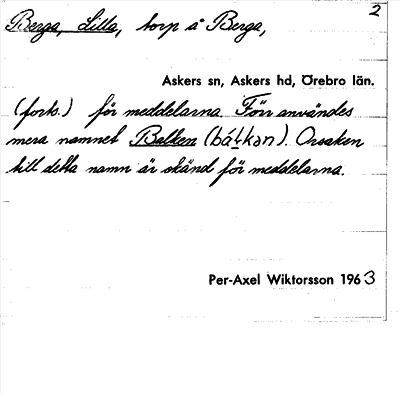 2
Berga, Lilla, torp å Berga,
Askers sn, Askers hd, Örebro län.
(forts.) för meddelarna. Förr användes
mera namnet Balken (bálkən). Orsaken
till detta namn är okänd för meddelarna.
Per-Axel Wiktorsson 1963